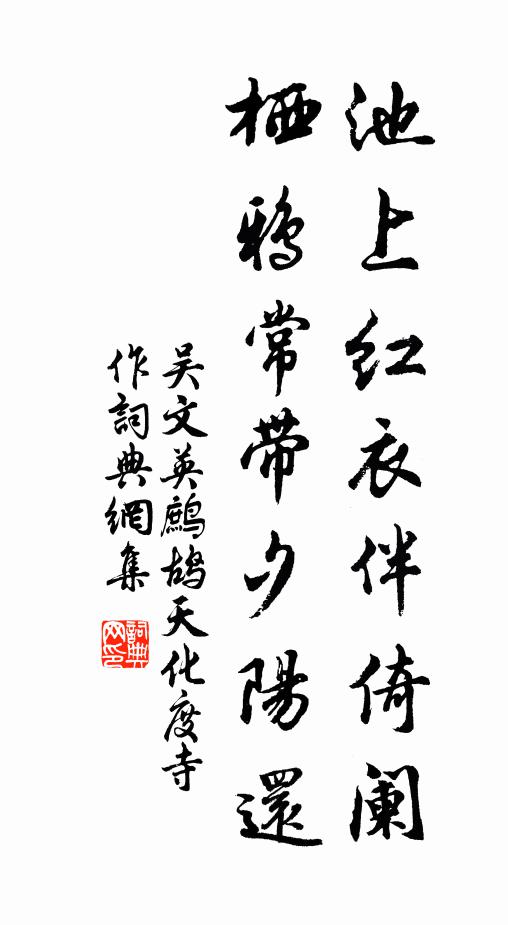 池上红衣伴倚阑
栖鴉常带夕陽還
吴文英鷓鴣天化度寺
作詞典網集
詞典网印